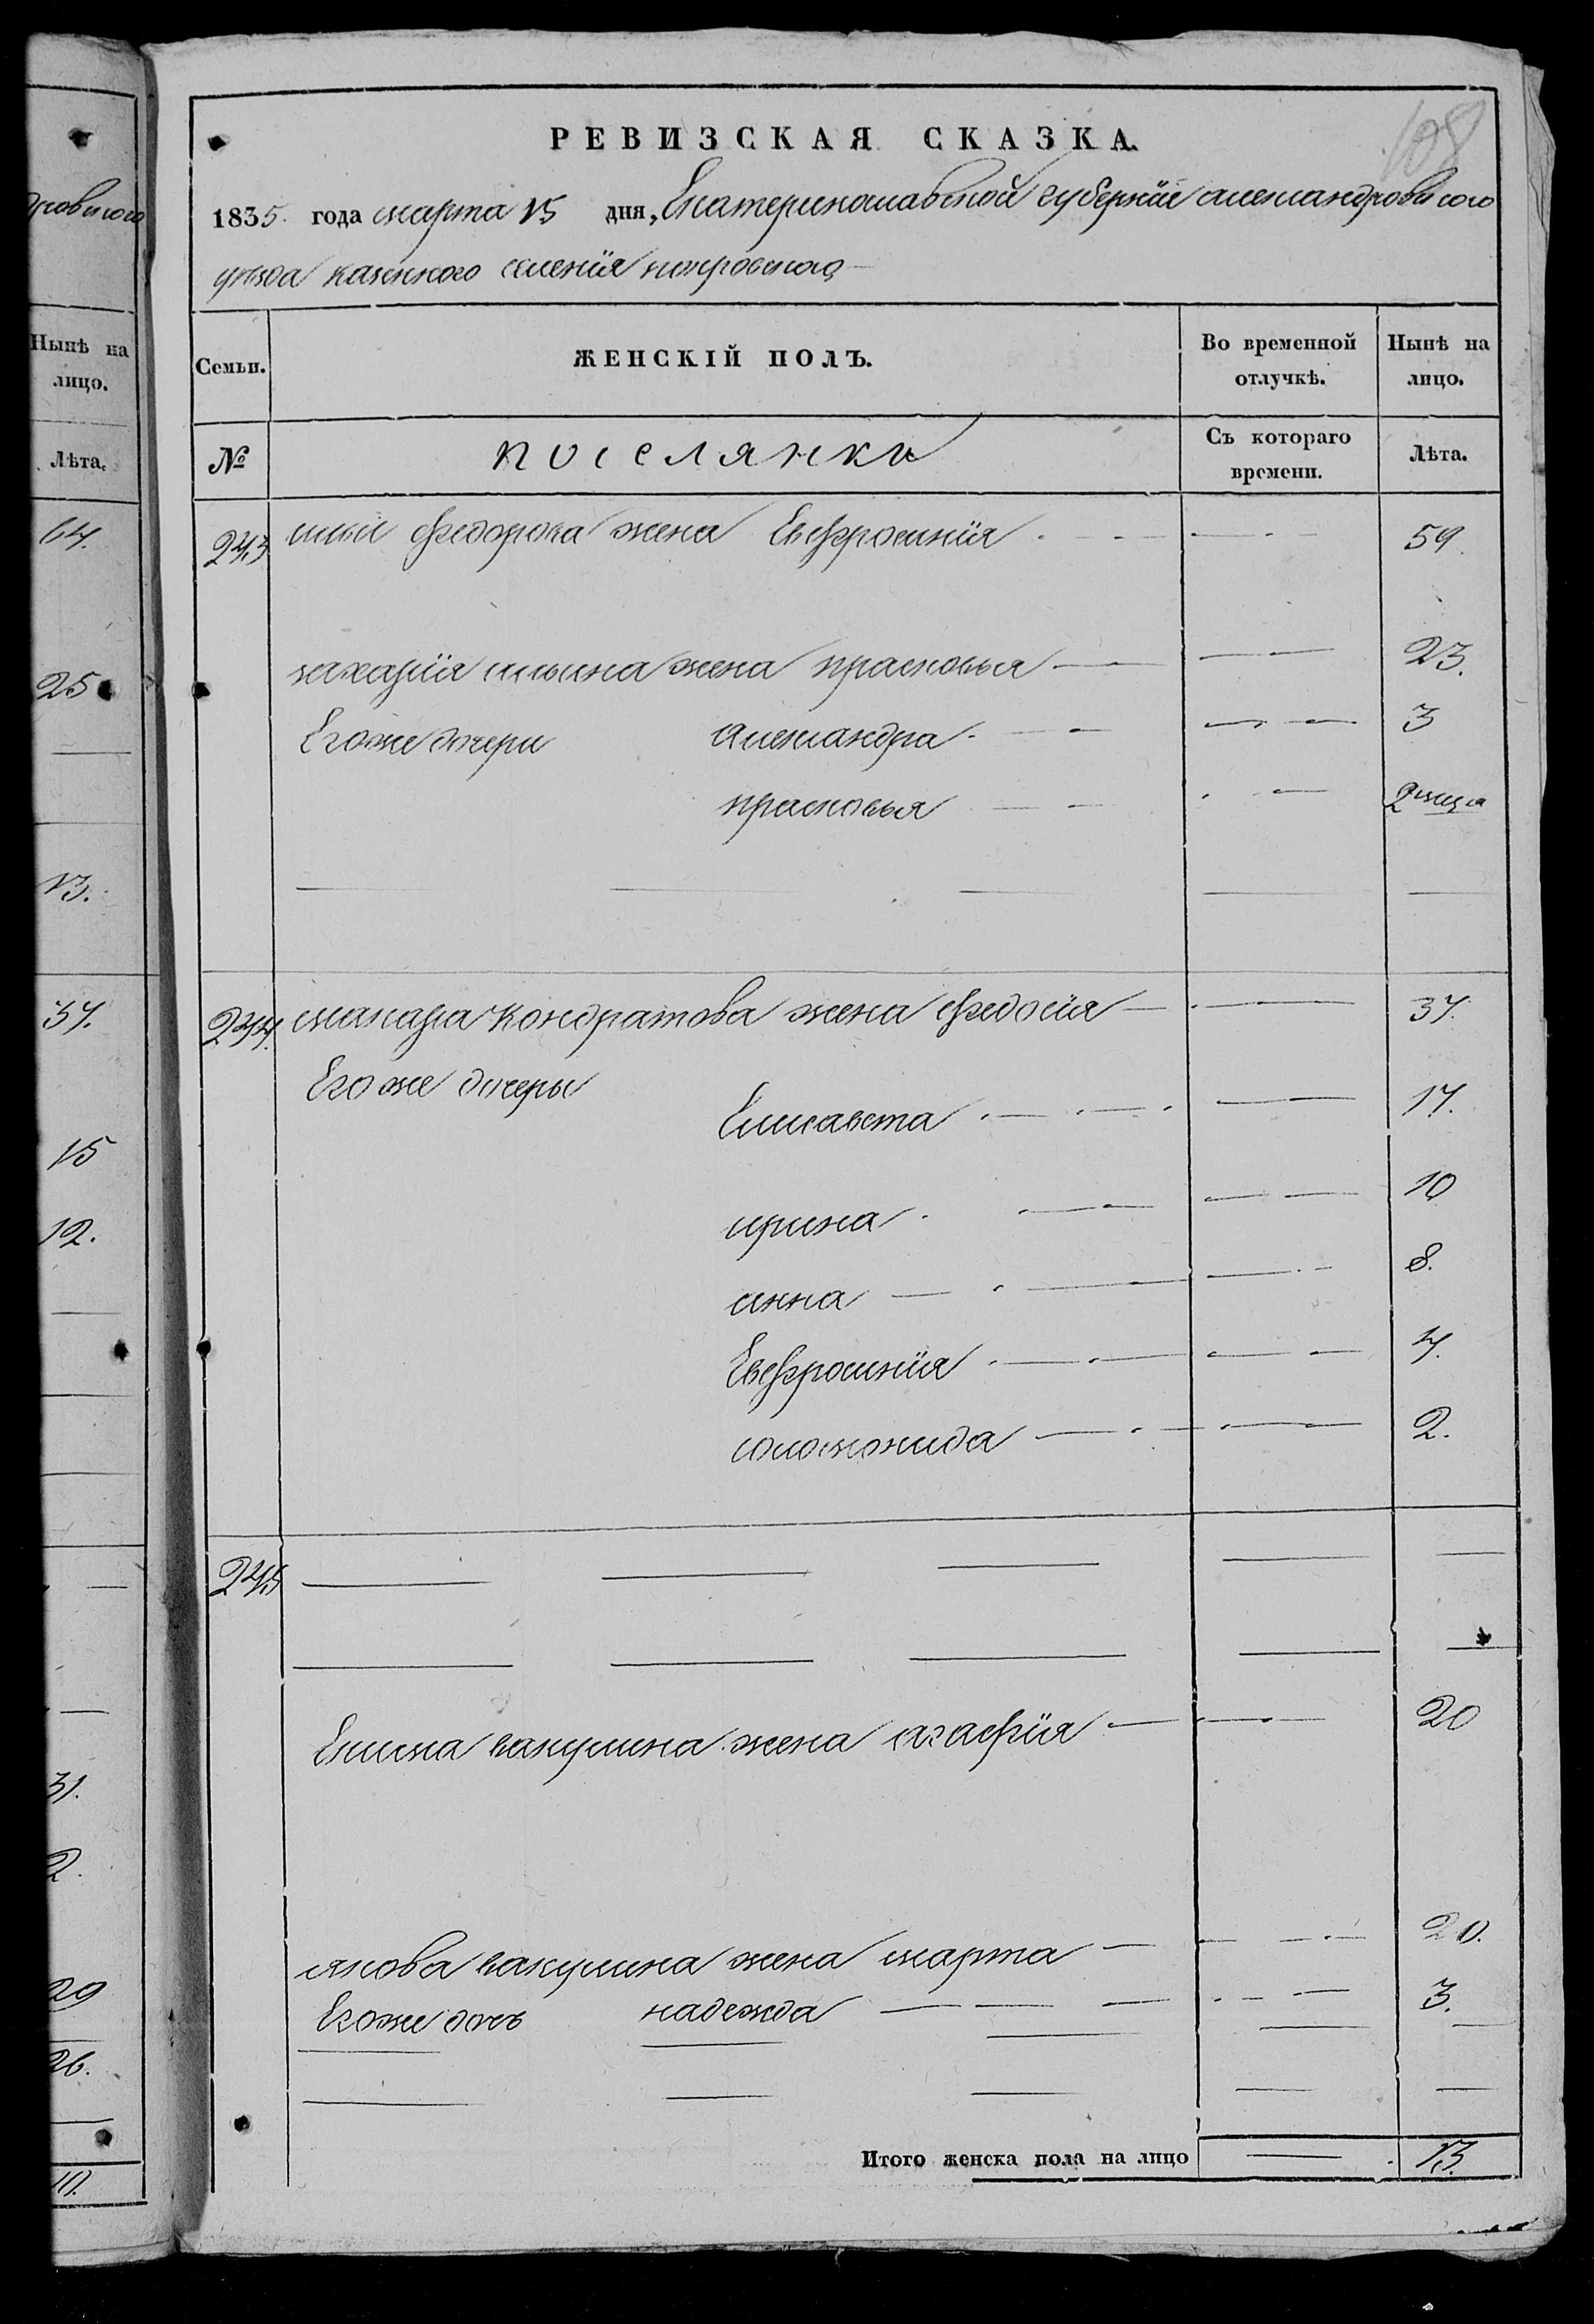 108
РЕВИЗСКАЯ СКАЗКА.
1835 года марта 15 дня, Екатеринославской губернїи александровского
уезда казенного селенїя покровского
Семьи. ЖЕНСКІЙ ПОЛЪ. Во временной отлучкѣ. Нынѣ на лицо.
№ поселянки Съ котораго времени. Лѣта.
243 ильи федорова жена Евфросинїя 59.
захарїя ильина жена прасковья 23.
Егоже дочери александра 3
прасковья 2 мица
244. макара кондратова жена федосїя 37.
Его же дочеры
Елисавета 17.
ирина 10
анна 8.
Евфросинїя 4.
соломонида 2.
245
Екима вакулина жена агафїя 20
якова вакулина жена марта 20.
Егоже дочь надежда 3.
Итого женска пола на лицо 13.
дровского
Нынѣ на
лицо.
Лѣта.
64.
25
13.
37.
15
12.
31.
2.
29
26.
10.